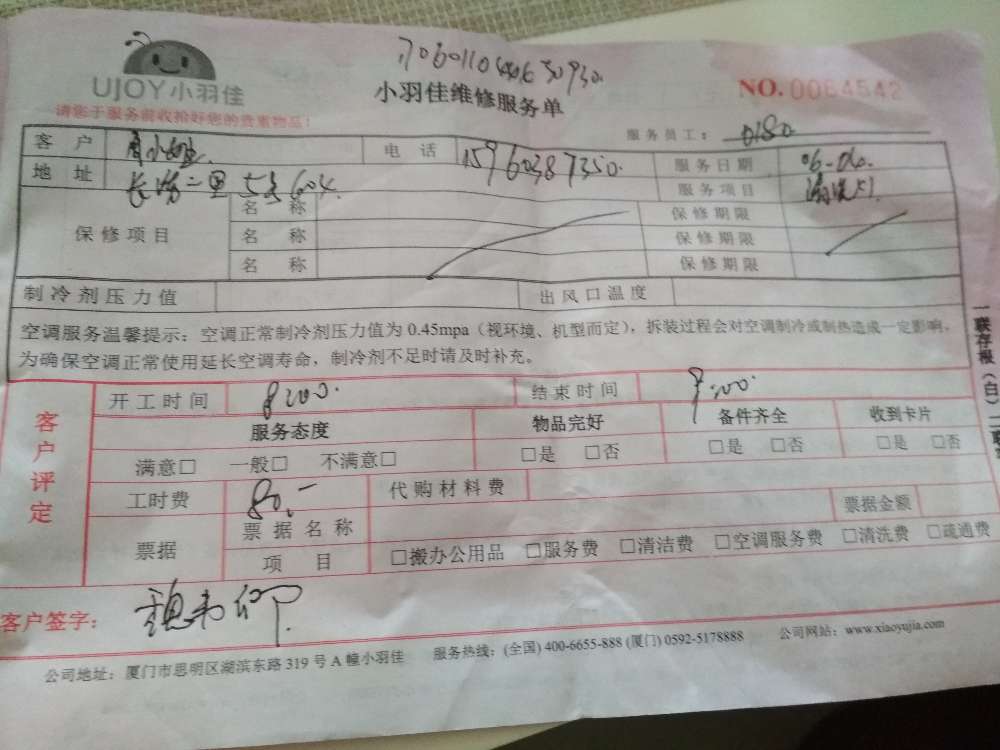 UJOY小羽佳
请您于服务前收拾好您的贵重物品！
小羽佳维修服务单
NO. 0064542
服务员工： 0180
客 户 电 话 15960387350. 服务日期 06-06.
地 址 长浩二里 604 服务项目
保修项目 名 称 保修期限
名 称 保修期限
名 称 保修期限
制冷剂压力值 出风口温度
空调服务温馨提示：空调正常制冷剂压力值为 0.45mpa（视环境、机型而定），拆装过程会对空调制冷或制热造成一定影响，
为确保空调正常使用延长空调寿命，制冷剂不足时请及时补充。
一联存根（白）二联
客户评定
开工时间 8:00. 结束时间 9:00.
服务态度 物品完好 备件齐全 收到卡片
满意□ 一般□ 不满意□ □是 □否 □是 □否 □是 □否
工时费 80.- 代购材料费
票据 票 据 名 称 票据金额
项 目 □搬办公用品 □服务费 □清洁费 □空调服务费 □清洗费 □疏通费
客户签字：
公司地址：厦门市思明区湖滨东路 319 号 A 幢小羽佳 服务热线：(全国) 400-6655-888 (厦门) 0592-5178888 公司网站：www.xiaoyujia.com